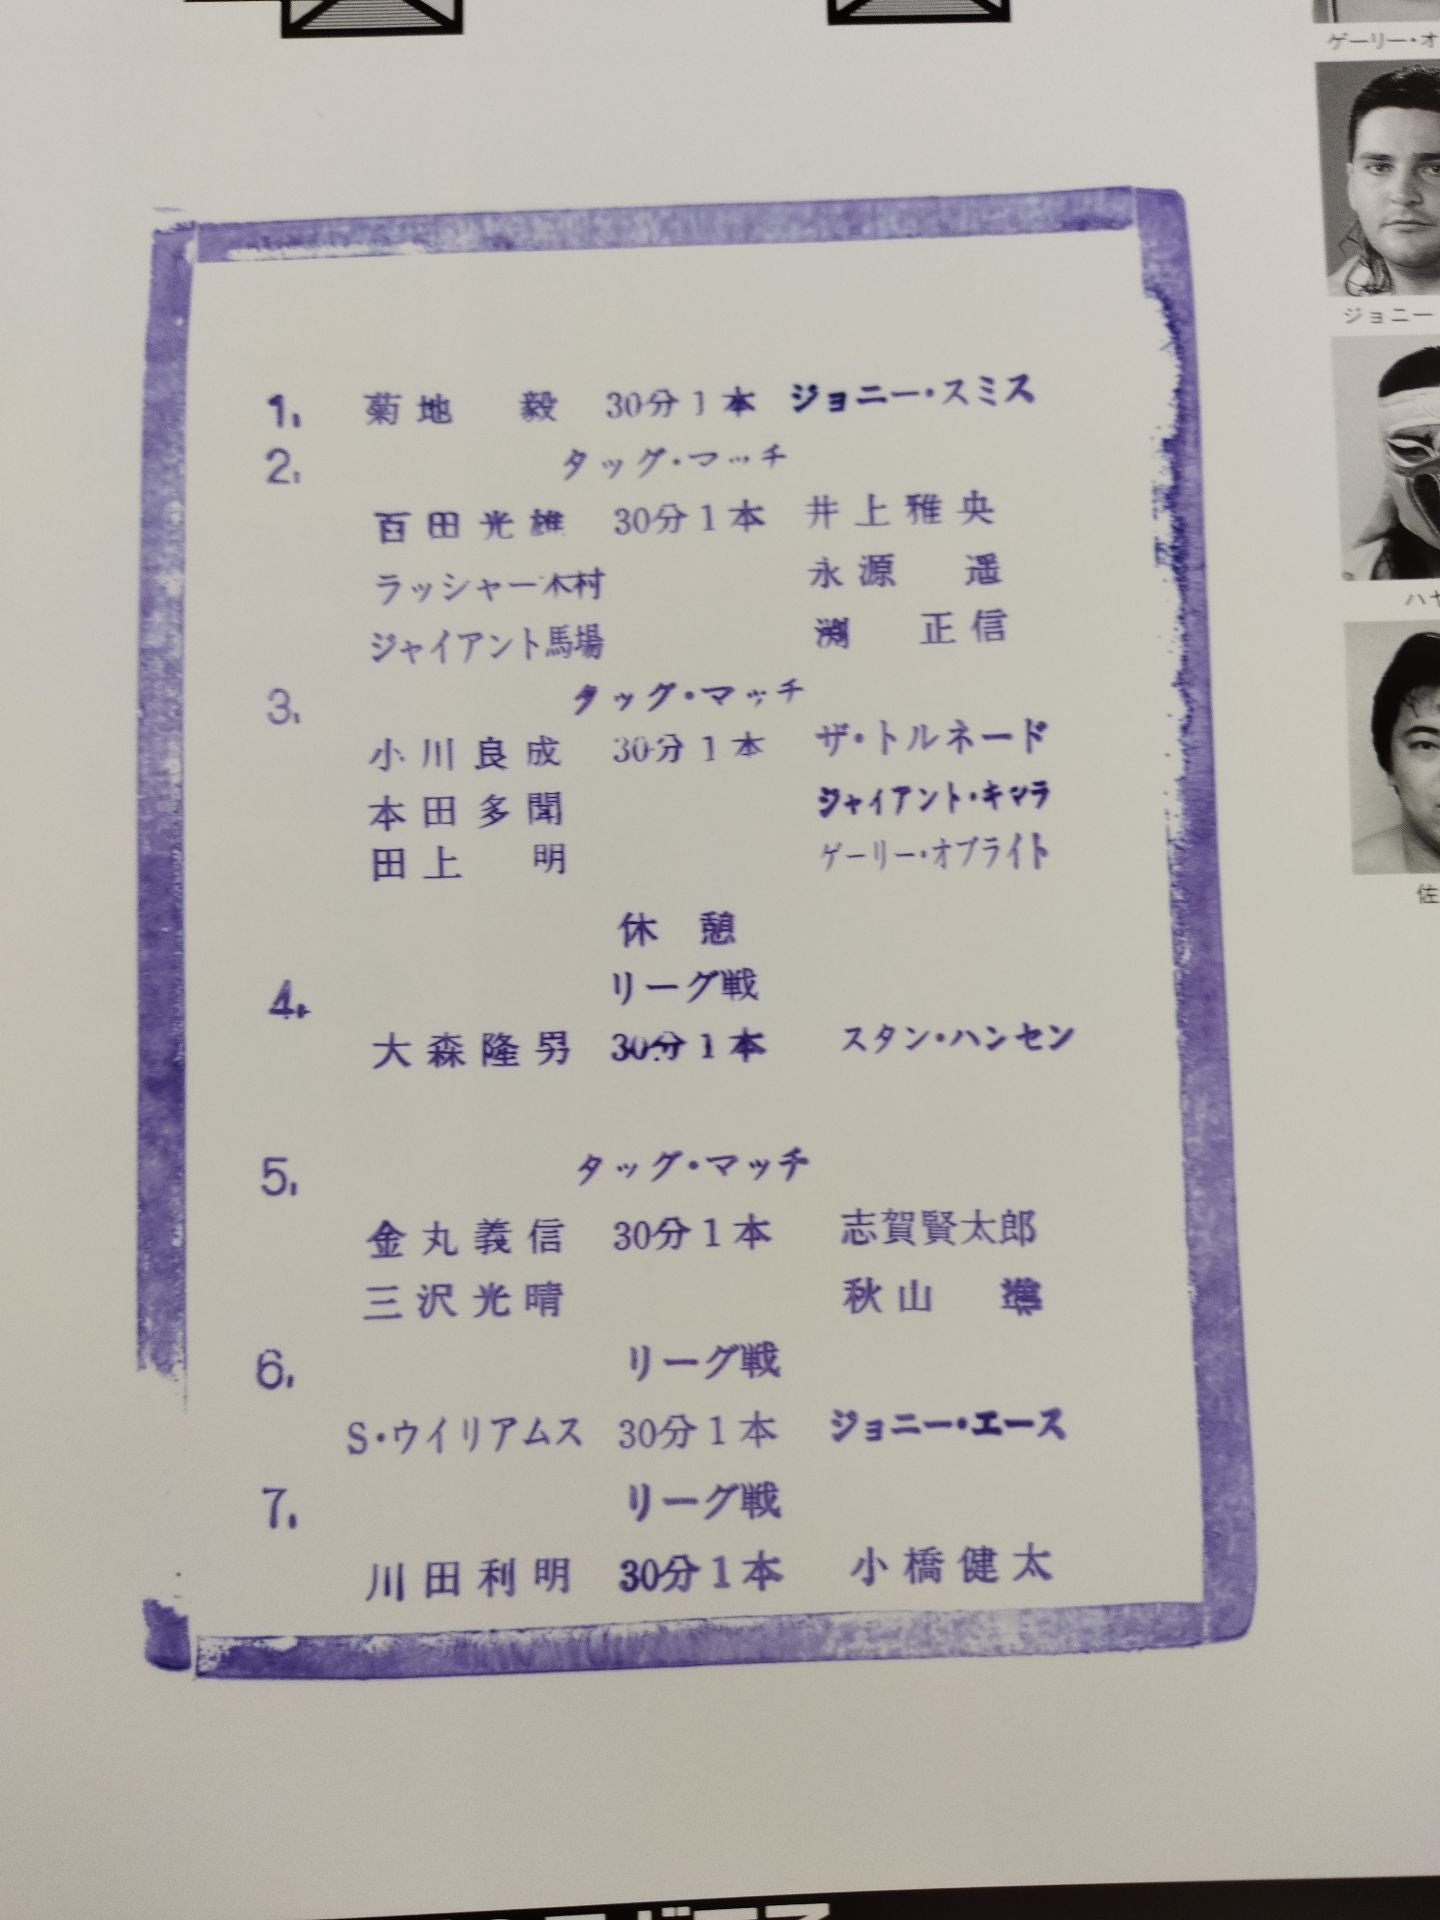 1. 菊地 毅 30分1本 ジョニー・スミス
2. タッグ・マッチ
百田光雄 30分1本 井上雅央
ラッシャー木村 永源 遥
ジャイアント馬場 渕 正信
3. タッグ・マッチ
小川良成 30分1本 ザ・トルネード
本田多聞 ジャイアント・キマラ
田上 明 ゲーリー・オブライト
休 憩
4. リーグ戦
大森隆男 30分1本 スタン・ハンセン
5. タッグ・マッチ
金丸義信 30分1本 志賀賢太郎
三沢光晴 秋山 準
6. リーグ戦
S・ウイリアムス 30分1本 ジョニー・エース
7. リーグ戦
川田利明 30分1本 小橋健太
ゲーリー・オ
ジョニー
ハヤ
佐